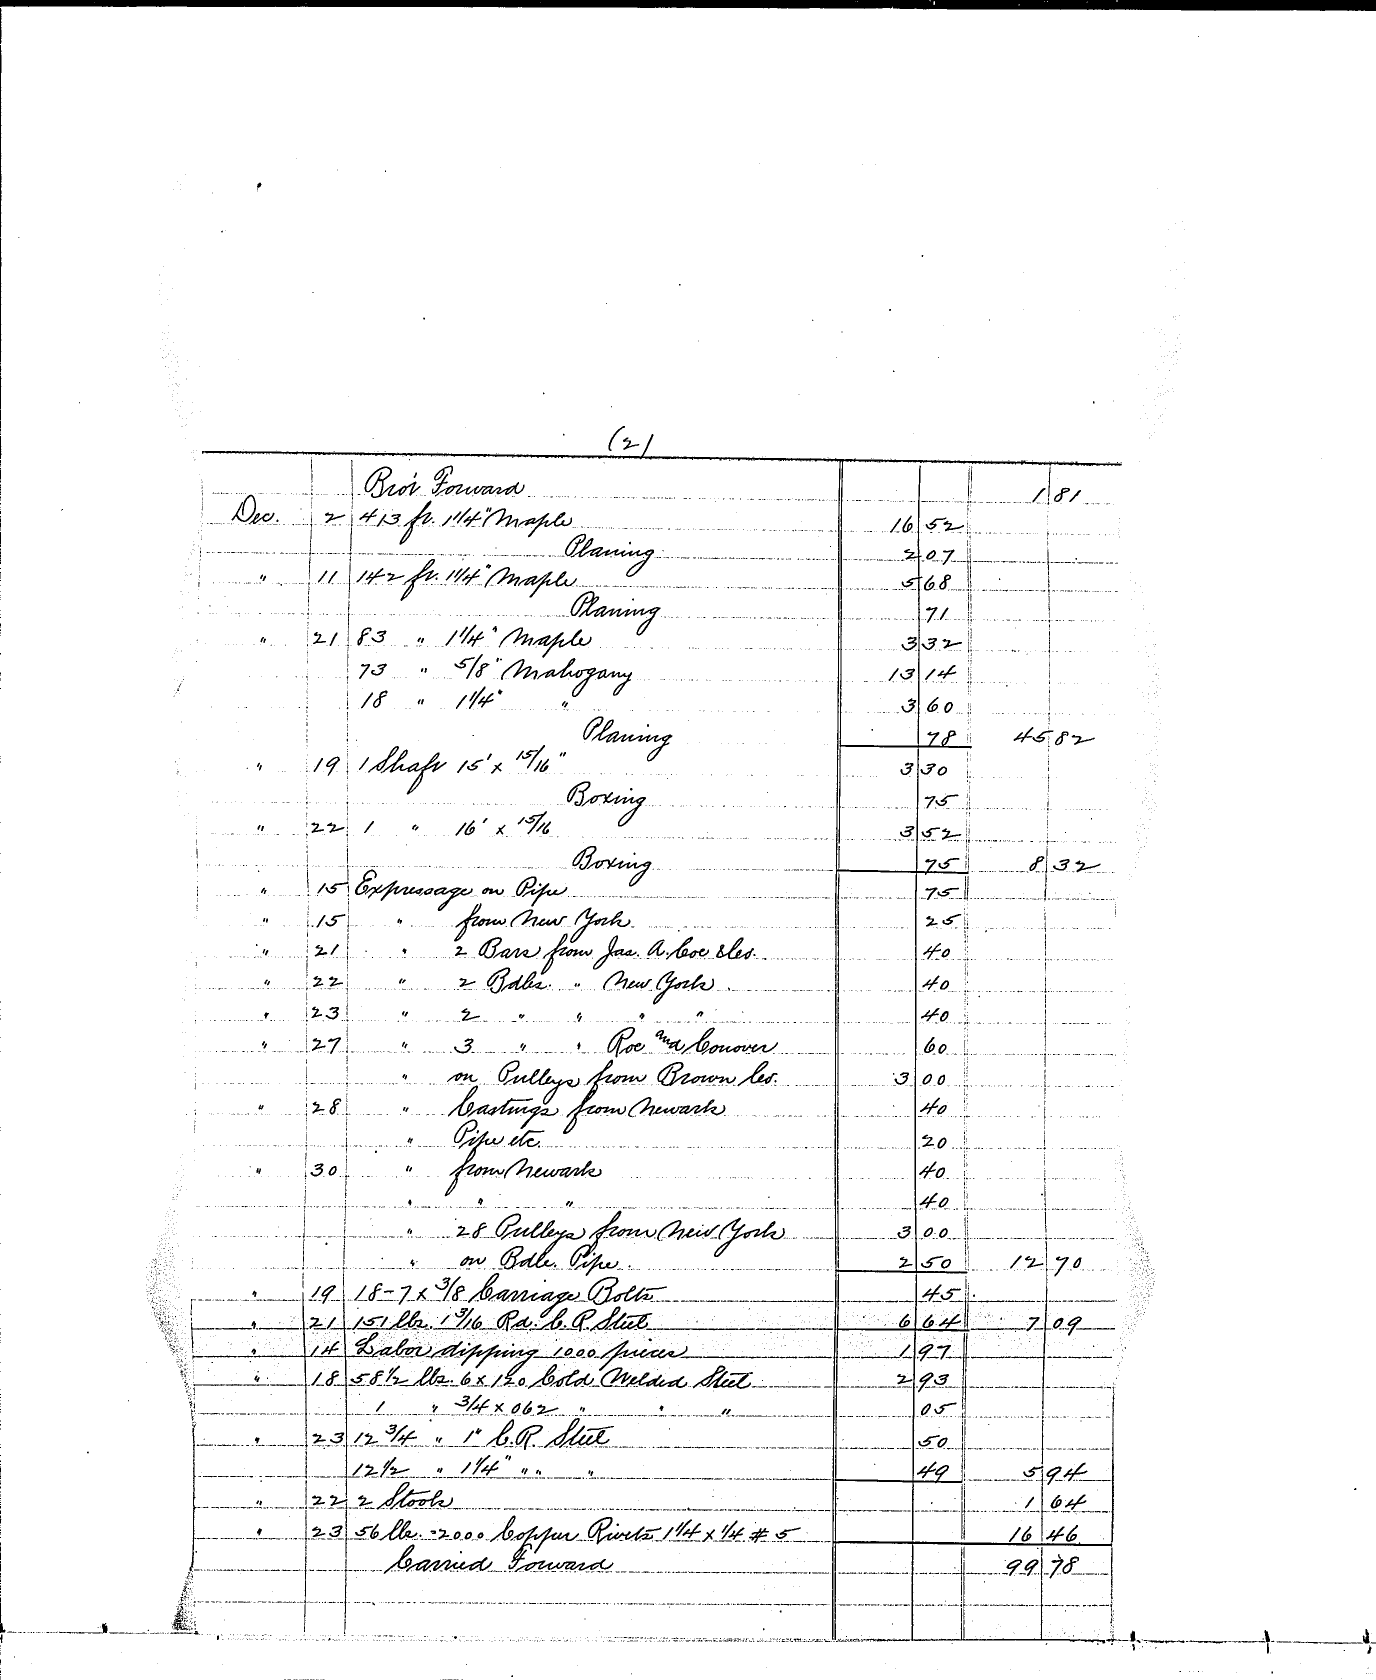 (2)
Bro't Forward 1 81
Dec. 2 413 ft. 1 1/4" Maple 16 52
Planing 2 07
" 11 142 ft. 1 1/4" Maple 5 68
Planing 71
" 21 83 " 1 1/4" Maple 3 32
73 " 5/8" Mahogany 13 14
18 " 1 1/4" " 3 60
Planing 78 45 82
" 19 1 Shaft 15' x 15/16" 3 30
Boxing 75
" 22 1 " 16' x 15/16 3 52
Boxing 75 8 32
" 15 Expressage on Pipe 75
" 15 " from New York 25
" 21 " 2 Bars from Jas. A. Coe & Co. 40
" 22 " 2 Bdls. " New York. 40
" 23 " 2 " " " " 40
" 27 " 3 " " Roe and Conover 60
" on Pulleys from Brown Co. 3 00
" 28 " Castings from Newark 40
" Pipe etc. 20
" 30 " from Newark 40
" " " 40
" 28 Pulleys from New York 3 00
" on Bdle. Pipe. 2 50 12 70
" 19 18-7 x 3/8 Carriage Bolts 45
" 21 151 lbs. 1 3/16 Rd. C. R. Steel 6 64 7 09
" 14 Labor dipping 1000 pieces 1 97
" 18 58 1/2 lbs. 6 x 120 Cold Welded Steel 2 93
1 " 3/4 x 062 " " " 05
" 23 12 3/4 " 1" C. R. Steel 50
12 1/2 " 1 1/4" " " " 49 5 94
" 22 2 Stools 1 64
" 23 56 lbs. -2000 Copper Rivets 1 1/4 x 1/4 # 5 16 46
Carried Forward 99 78